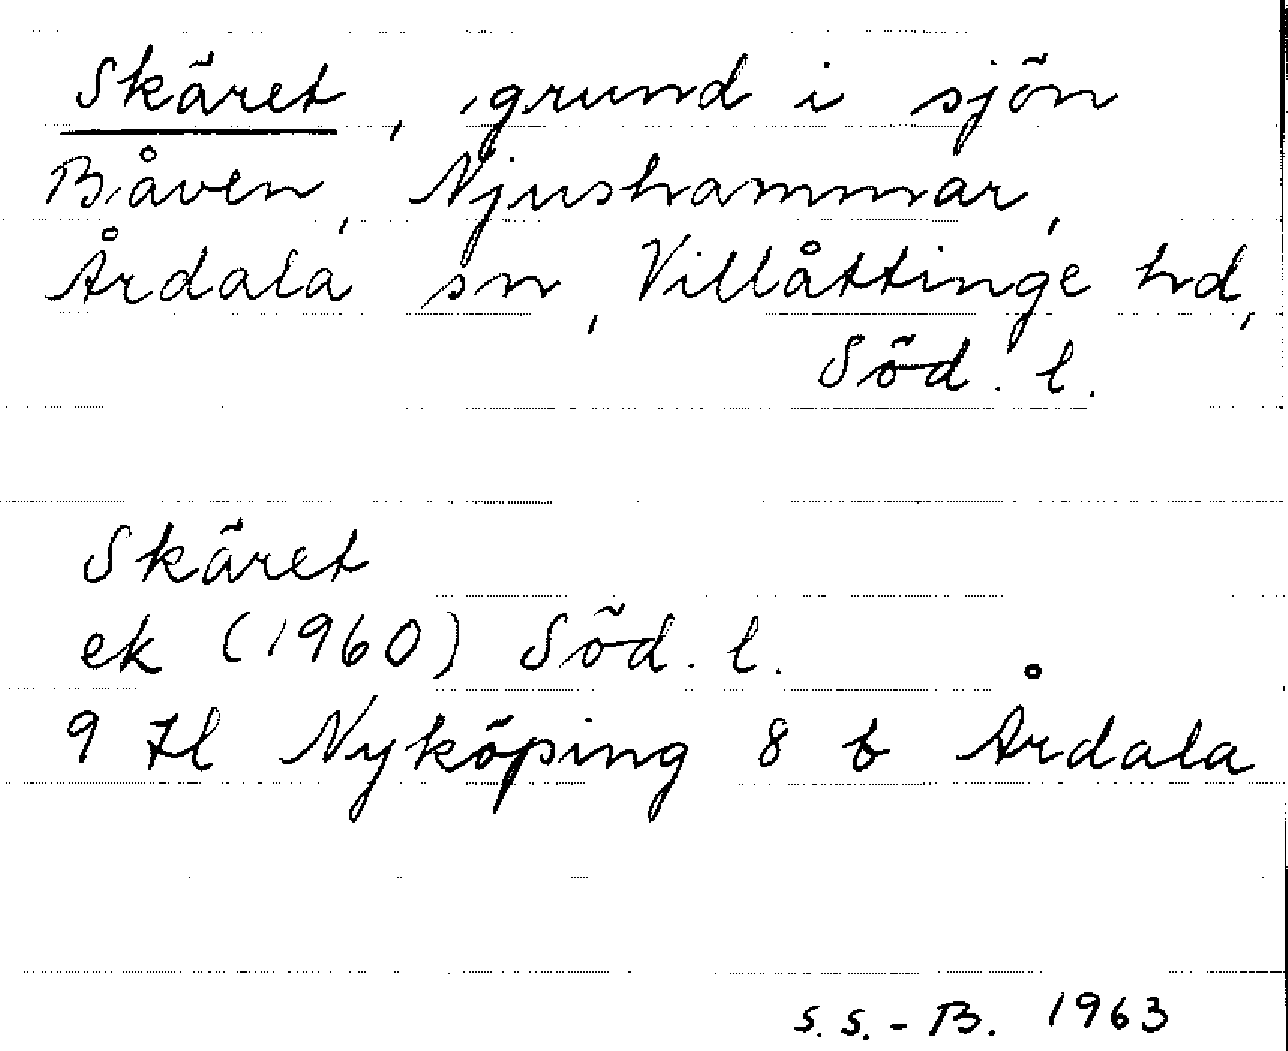 Skäret, grund i sjön
Båven, Njushammar,
Årdala sn, Villåttinge hd,
Söd. l.
Skäret
ek (1960) Söd. l.
9 H Nyköping 8 b Årdala
S.S.-B. 1963